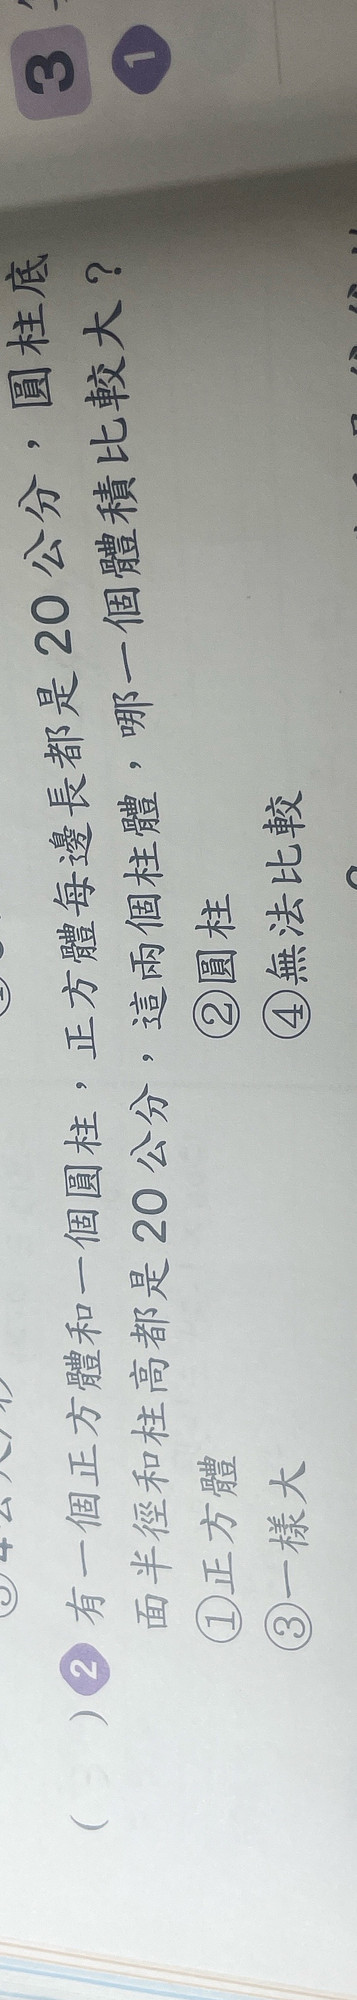 ( ) 2 有一個正方體和一個圓柱，正方體每邊長都是20公分，圓柱底
面半徑和柱高都是20公分，這兩個柱體，哪一個體積比較大？
①正方體 ②圓柱
③一樣大 ④無法比較
3
1